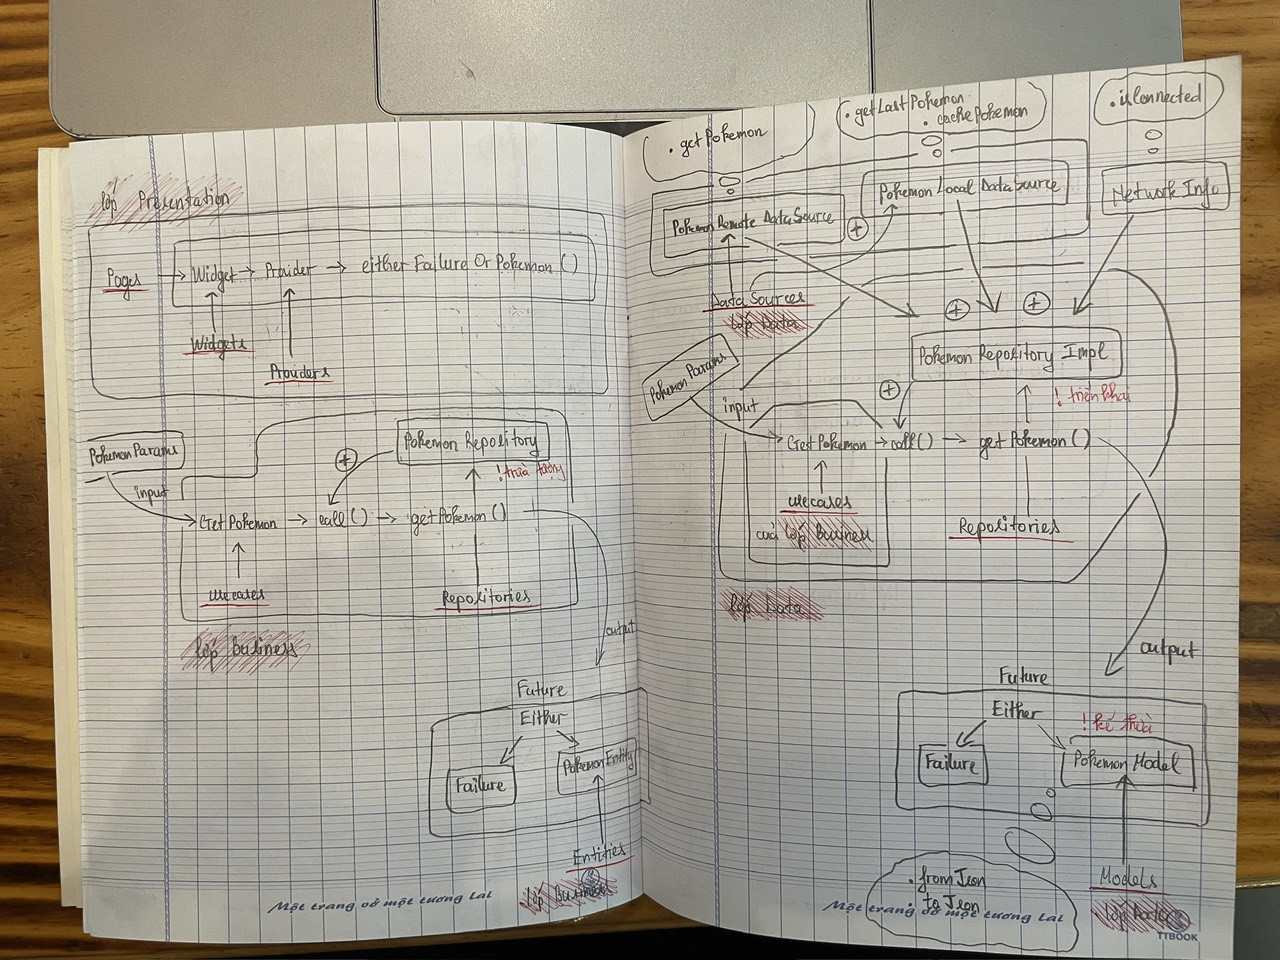 lớp Presentation
Pages → Widget → Provider → either Failure Or Pokemon ( )
Widgets
Providers
Pokemon Params
input
Pokemon Repository
! trừu tượng
+
Get Pokemon → call ( ) → get Pokemon ( )
usecases
Repositories
lớp Business
output
Future
Either
Failure
Pokemon Entity
Entities
lớp Business
Một trang vở một tương lai
. getPokemon
. getLastPokemon
. cachePokemon
. isConnected
Pokemon Remote DataSource
Pokemon Local DataSource
Network Info
+
Data Sources
lớp Data
+
+
Pokemon Params
input
Pokemon Repository Impl
! triển khai
+
Get Pokemon → call ( ) → get Pokemon ( )
usecases
của lớp Business
Repositories
lớp Data
output
Future
Either
! kế thừa
Failure
Pokemon Model
. from Json
. to Json
Models
lớp Data
Một trang vở một tương lai
TTBOOK